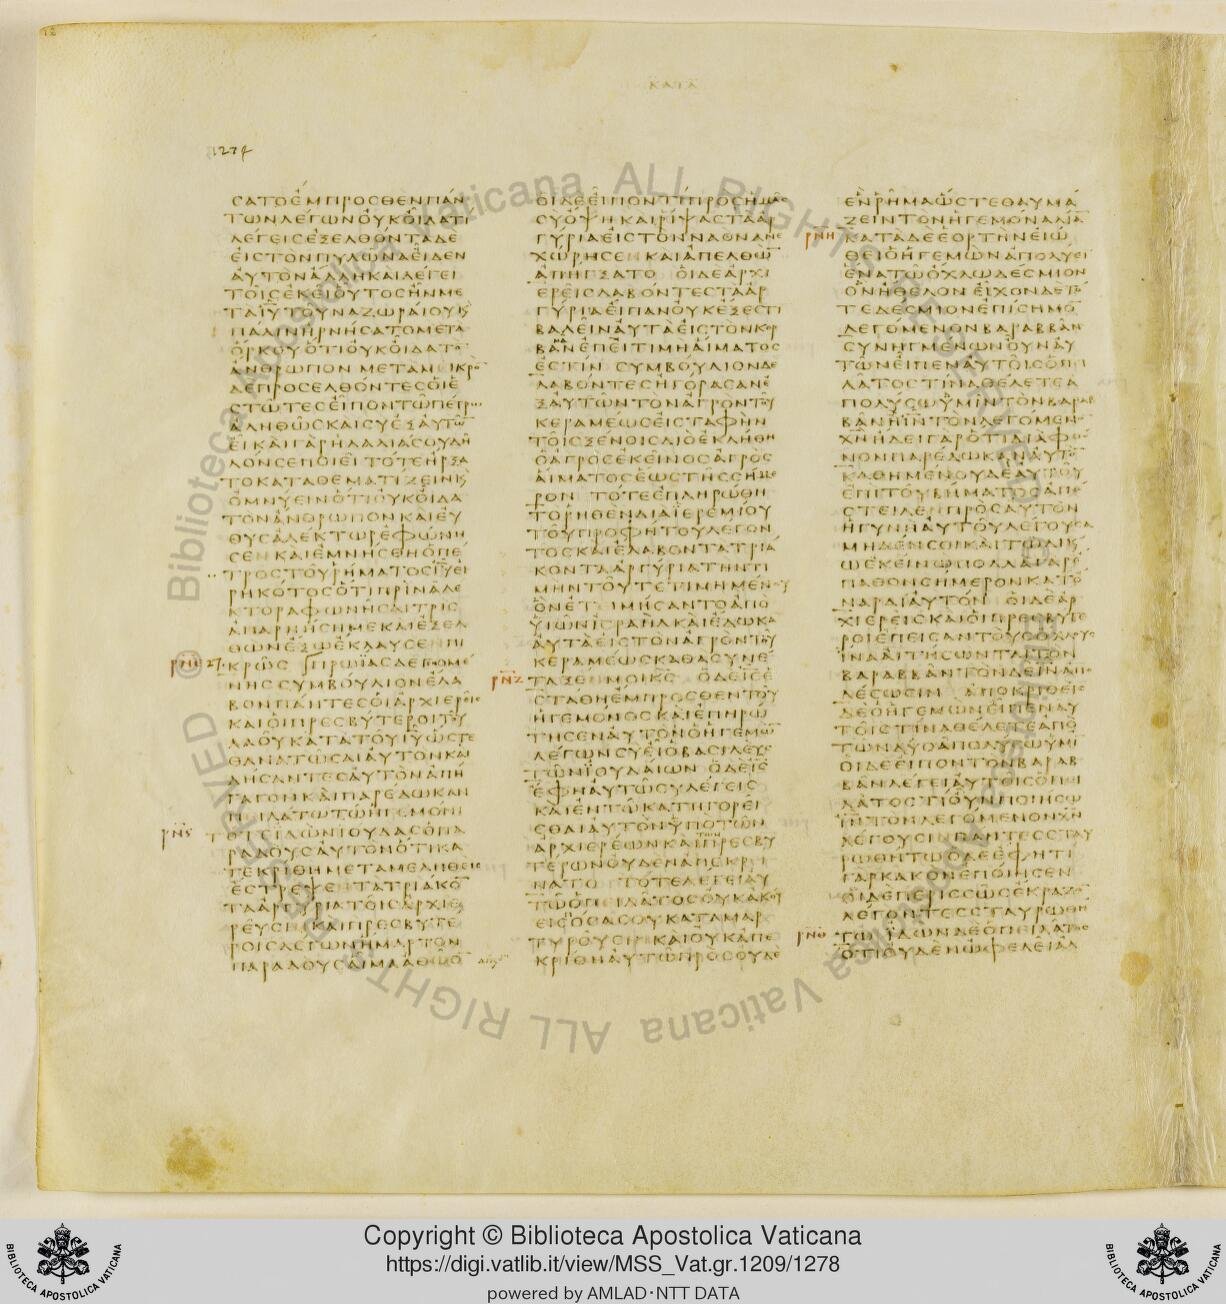 ΚΑΤΑ
1274
ΣΑΤΟΕΜΠΡΟΣΘΕΝΠΑΝ
ΤΩΝΛΕΓΩΝΟΥΚΟΙΔΑΤΙ
ΛΕΓΕΙΣΕΞΕΛΘΟΝΤΑΔΕ
ΕΙΣΤΟΝΠΥΛΩΝΑΕΙΔΕΝ
ΑΥΤΟΝΑΛΛΗΚΑΙΛΕΓΕΙ
ΤΟΙΣΕΚΕΙΟΥΤΟΣΗΝΜΕ
ΤΑΙΥΤΟΥΝΑΖΩΡΑΙΟΥΚ
ΠΑΛΙΝΗΡΝΗΣΑΤΟΜΕΤΑ
ΟΡΚΟΥΟΤΙΟΥΚΟΙΔΑΤΟ
ΑΝΘΡΩΠΟΝ ΜΕΤΑΜΙΚΡΟ
ΔΕΠΡΟΣΕΛΘΟΝΤΕΣΟΙΕ
ΣΤΩΤΕΣΕΙΠΟΝΤΩΠΕΤΡΩ
ΑΛΗΘΩΣΚΑΙΣΥΕΞΑΥΤΩ
ΕΙΚΑΙΓΑΡΗΛΑΛΙΑΣΟΥΔΗ
ΛΟΝΣΕΠΟΙΕΙ ΤΟΤΕΗΡΞΑ
ΤΟΚΑΤΑΘΕΜΑΤΙΖΕΙΝΚ
ΟΜΝΥΕΙΝΟΤΙΟΥΚΟΙΔΑ
ΤΟΝΑΝΘΡΩΠΟΝΚΑΙΕΥ
ΘΥΣΑΛΕΚΤΩΡΕΦΩΝΗ
ΣΕΝ ΚΑΙΕΜΝΗΣΘΗΟΠΕ
ΤΡΟΣΤΟΥΡΗΜΑΤΟΣΙΥΕΙ
ΡΗΚΟΤΟΣΟΤΙΠΡΙΝΑΛΕ
ΚΤΟΡΑΦΩΝΗΣΑΙΤΡΙΣ
ΑΠΑΡΝΗΣΗΜΕΚΑΙΕΞΕΛ
ΘΩΝΕΞΩΕΚΛΑΥΣΕΝΠΙ
ΚΡΩΣ ΠΡΩΙΑΣΔΕΓΕΝΟΜΕ
ΝΗΣΣΥΜΒΟΥΛΙΟΝΕΛΑ
ΒΟΝΠΑΝΤΕΣΟΙΑΡΧΙΕΡΕΙΣ
ΚΑΙΟΙΠΡΕΣΒΥΤΕΡΟΙΤΟΥ
ΛΑΟΥΚΑΤΑΤΟΥΙΥΩΣΤΕ
ΘΑΝΑΤΩΣΑΙΑΥΤΟΝΚΑΙ
ΔΗΣΑΝΤΕΣΑΥΤΟΝΑΠΗ
ΓΑΓΟΝΚΑΙΠΑΡΕΔΩΚΑΝ
ΠΕΙΛΑΤΩΤΩΗΓΕΜΟΝΙ
ΤΟΤΕΙΔΩΝΙΟΥΔΑΣΟΠΑ
ΡΑΔΟΥΣΑΥΤΟΝΟΤΙΚΑ
ΤΕΚΡΙΘΗΜΕΤΑΜΕΛΗΘΕΙΣ
ΕΣΤΡΕΨΕΝΤΑΤΡΙΑΚΟ
ΤΑΑΡΓΥΡΙΑΤΟΙΣΑΡΧΙΕ
ΡΕΥΣΙΝΚΑΙΠΡΕΣΒΥΤΕ
ΡΟΙΣΛΕΓΩΝΗΜΑΡΤΟΝ
ΠΑΡΑΔΟΥΣΑΙΜΑΑΘΩΟ
ΟΙΔΕΕΙΠΟΝΤΙΠΡΟΣΗΜΑΣ
ΣΥΟΨΗΚΑΙΡΙΨΑΣΤΑΑΡ
ΓΥΡΙΑΕΙΣΤΟΝΝΑΟΝΑΝΕ
ΧΩΡΗΣΕΝ ΚΑΙΑΠΕΛΘΩ
ΑΠΗΓΞΑΤΟ ΟΙΔΕΑΡΧΙ
ΕΡΕΙΣΛΑΒΟΝΤΕΣΤΑΑΡ
ΓΥΡΙΑΕΙΠΑΝΟΥΚΕΞΕΣΤΙ
ΒΑΛΕΙΝΑΥΤΑΕΙΣΤΟΝΚΟΡ
ΒΑΝΕΠΕΙΤΙΜΗΑΙΜΑΤΟΣ
ΕΣΤΙΝ ΣΥΜΒΟΥΛΙΟΝΔΕ
ΛΑΒΟΝΤΕΣΗΓΟΡΑΣΑΝΕ
ΞΑΥΤΩΝΤΟΝΑΓΡΟΝΤΟΥ
ΚΕΡΑΜΕΩΣΕΙΣΤΑΦΗΝ
ΤΟΙΣΞΕΝΟΙΣΔΙΟΕΚΛΗΘΗ
ΟΑΓΡΟΣΕΚΕΙΝΟΣΑΓΡΟΣ
ΑΙΜΑΤΟΣΕΩΣΤΗΣΣΗΜΕ
ΡΟΝ ΤΟΤΕΕΠΛΗΡΩΘΗ
ΤΟΡΗΘΕΝΔΙΑΙΕΡΕΜΙΟΥ
ΤΟΥΠΡΟΦΗΤΟΥΛΕΓΟΝ
ΤΟΣΚΑΙΕΛΑΒΟΝΤΑΤΡΙΑ
ΚΟΝΤΑΑΡΓΥΡΙΑΤΗΝΤΙ
ΜΗΝΤΟΥΤΕΤΙΜΗΜΕΝΟΥ
ΟΝΕΤΙΜΗΣΑΝΤΟΑΠΟ
ΥΙΩΝΙΣΡΑΗΛΚΑΙΕΔΩΚΑ
ΑΥΤΑΕΙΣΤΟΝΑΓΡΟΝΤΟΥ
ΚΕΡΑΜΕΩΣΚΑΘΑΣΥΝΕ
ΤΑΞΕΝΜΟΙΚΣ ΟΔΕΙΣΕ
ΣΤΑΘΗΕΜΠΡΟΣΘΕΝΤΟΥ
ΗΓΕΜΟΝΟΣΚΑΙΕΠΗΡΩ
ΤΗΣΕΝΑΥΤΟΝΟΗΓΕΜΩ
ΛΕΓΩΝΣΥΕΙΟΒΑΣΙΛΕΥΣ
ΤΩΝΙΟΥΔΑΙΩΝ ΟΔΕΙΣ
ΕΦΗΑΥΤΩΣΥΛΕΓΕΙΣ
ΚΑΙΕΝΤΩΚΑΤΗΓΟΡΕΙ
ΣΘΑΙΑΥΤΟΝΥΠΟΤΩΝ
ΑΡΧΙΕΡΕΩΝΚΑΙΠΡΕΣΒΥ
ΤΕΡΩΝΟΥΔΕΝΑΠΕΚΡΙ
ΝΑΤΟ ΤΟΤΕΛΕΓΕΙΑΥ
ΤΩΟΠΕΙΛΑΤΟΣΟΥΚΑΚΟΥ
ΕΙΣΠΟΣΑΣΟΥΚΑΤΑΜΑΡ
ΤΥΡΟΥΣΙΝΚΑΙΟΥΚΑΠΕ
ΚΡΙΘΗΑΥΤΩΠΡΟΣΟΥΔΕ
ΕΝΡΗΜΑΩΣΤΕΘΑΥΜΑ
ΖΕΙΝΤΟΝΗΓΕΜΟΝΑΛΙΑ
ΚΑΤΑΔΕΕΟΡΤΗΝΕΙΩ
ΘΕΙΟΗΓΕΜΩΝΑΠΟΛΥΕΙ
ΕΝΑΤΩΟΧΛΩΔΕΣΜΙΟΝ
ΟΝΗΘΕΛΟΝ ΕΙΧΟΝΔΕΤΟ
ΤΕΔΕΣΜΙΟΝΕΠΙΣΗΜΟ
ΛΕΓΟΜΕΝΟΝΒΑΡΑΒΒΑΝ
ΣΥΝΗΓΜΕΝΩΝΟΥΝΑΥ
ΤΩΝΕΙΠΕΝΑΥΤΟΙΣΟΠΙ
ΛΑΤΟΣΤΙΝΑΘΕΛΕΤΕΑ
ΠΟΛΥΣΩΥΜΙΝΤΟΝΒΑΡΑΒ
ΒΑΝΗΙΝΤΟΝΛΕΓΟΜΕΝΟ
ΧΝΗΔΕΙΓΑΡΟΤΙΔΙΑΦΘΟ
ΝΟΝΠΑΡΕΔΩΚΑΝΑΥΤΟ
ΚΑΘΗΜΕΝΟΥΔΕΑΥΤΟΥ
ΕΠΙΤΟΥΒΗΜΑΤΟΣΑΠΕ
ΣΤΕΙΛΕΝΠΡΟΣΑΥΤΟΝ
ΗΓΥΝΗΑΥΤΟΥΛΕΓΟΥΣΑ
ΜΗΔΕΝΣΟΙΚΑΙΤΩΔΙΚ
ΩΕΚΕΙΝΩΠΟΛΛΑΓΑΡΕ
ΠΑΘΟΝΣΗΜΕΡΟΝΚΑΤΟ
ΝΑΡΔΙΑΥΤΟΝ ΟΙΔΕΑΡ
ΧΙΕΡΕΙΣΚΑΙΟΙΠΡΕΣΒΥΤΕ
ΡΟΙΕΠΕΙΣΑΝΤΟΥΣΟΧΛΟΥΣ
ΙΝΑΑΙΤΗΣΩΝΤΑΙΤΟΝ
ΒΑΡΑΒΒΑΝΤΟΝΔΕΙΝΑΠΟ
ΛΕΣΩΣΙΝ ΑΠΟΚΡΙΘΕΙΣ
ΔΕΟΗΓΕΜΩΝΕΙΠΕΝΑΥ
ΤΟΙΣΤΙΝΑΘΕΛΕΤΕΑΠΟ
ΤΩΝΔΥΟΑΠΟΛΥΣΩΥΜΙ
ΟΙΔΕΕΙΠΟΝΤΟΝΒΑΡΑΒ
ΒΑΝΛΕΓΕΙΑΥΤΟΙΣΟΠΕΙ
ΛΑΤΟΣ ΤΙΟΥΝΠΟΙΗΣΩ
ΙΝΤΟΝΛΕΓΟΜΕΝΟΝΧΝ
ΛΕΓΟΥΣΙΝΠΑΝΤΕΣΣΤΑΥ
ΡΩΘΗΤΩΟΔΕΕΦΗΤΙ
ΓΑΡΚΑΚΟΝΕΠΟΙΗΣΕΝ
ΟΙΔΕΠΕΡΙΣΣΩΣΕΚΡΑΖΟ
ΛΕΓΟΝΤΕΣΣΤΑΥΡΩΘΗ
ΤΩ ΙΔΩΝΔΕΟΠΕΙΛΑΤΟΣ
ΟΤΙΟΥΔΕΝΩΦΕΛΕΙΑΛ
Copyright © Biblioteca Apostolica Vaticana
https://digi.vatlib.it/view/MSS_Vat.gr.1209/1278
powered by AMLAD·NTT DATA